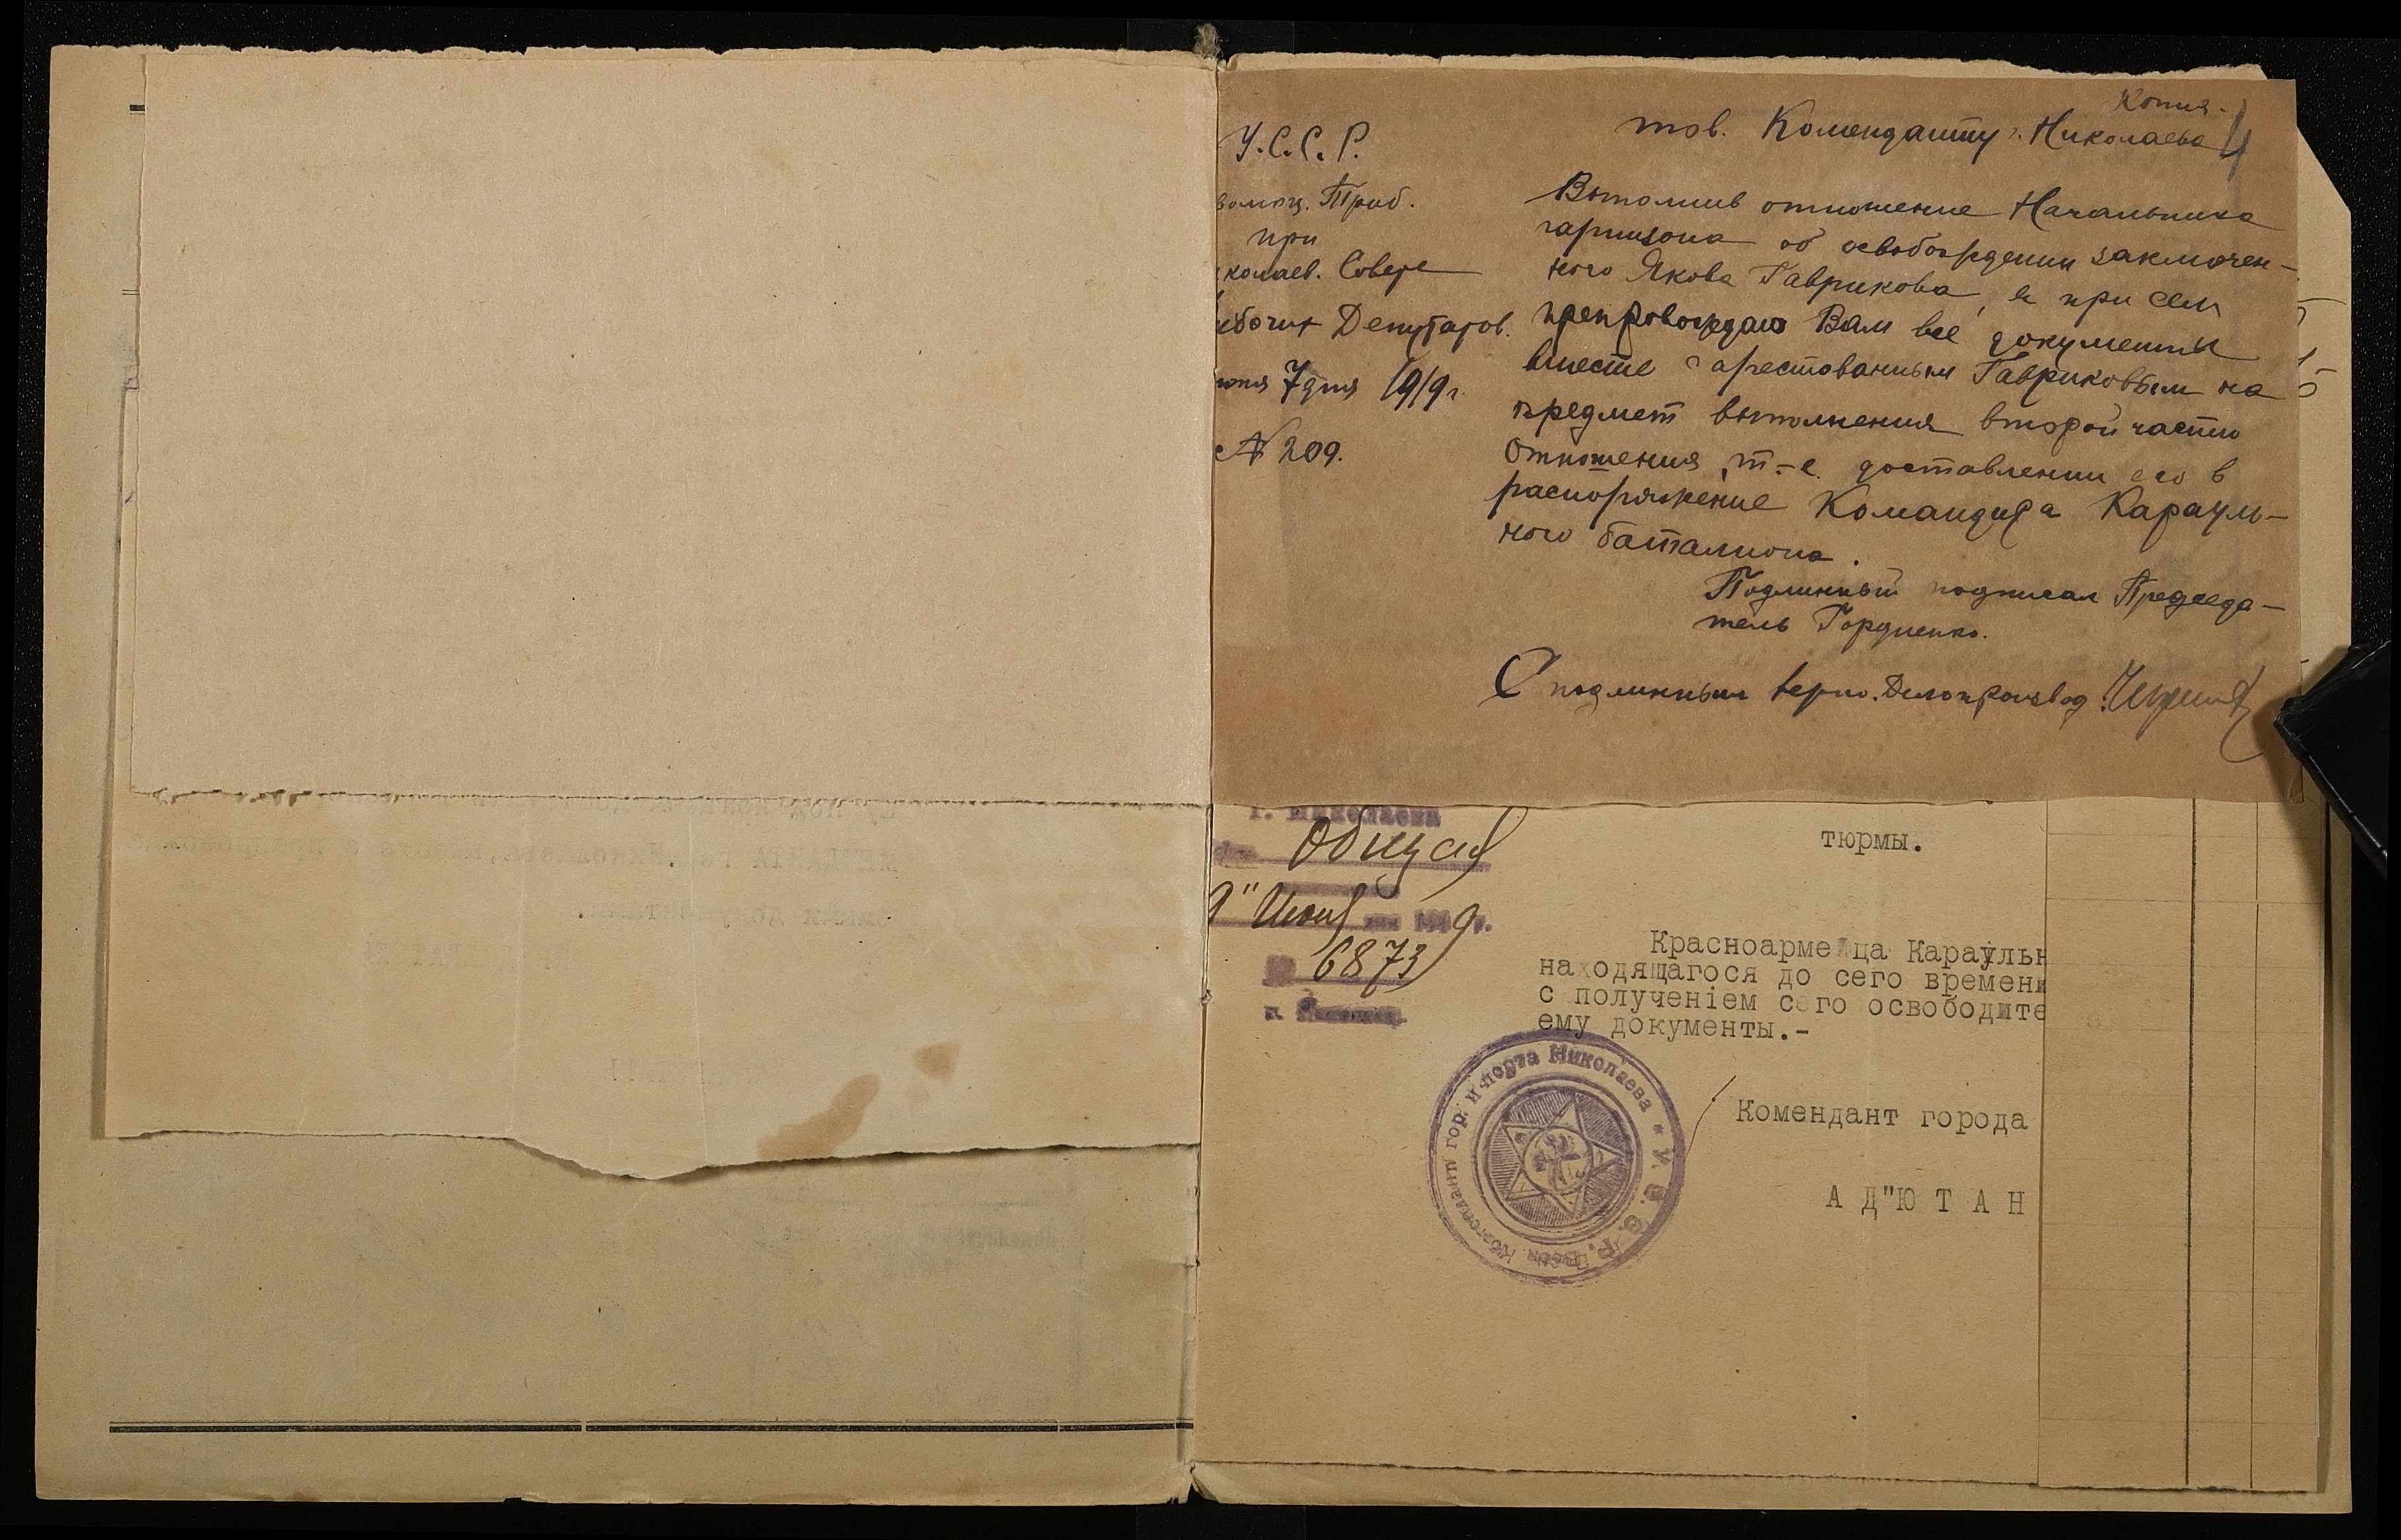 Копия.
4
тов. Коменданту г. Николаева
У.С.С.Р.
волюц. Триб.
при
колаев. Совете
абочих Депутатов.
юня 7 дня 1919 г.
№ 209.
Выполнив отношение Начальника
гарнизона об освобождении заключен-
ного Якова Гаврикова, я при сем
препровождаю Вам все документы
вместе с арестованным Гавриковым на
предмет выполнения второй части
отношения, т.-е. доставлении его в
распоряжение Командира Карауль-
ного баталиона.
Подлинный подписал Председа-
тель Гордиенко.
С подлинным верно. Делопроизвод.
г. Николаева
Общая
" Июня дня 1919 г.
№ 6873
тюрмы.
Красноармейца Караульн
находящагося до сего времени
с полученіем сего освободите
ему документы.-
Комендант города
АД"ЮТАН
Комендант гор. и порта Николаева * У. С. С. Р.